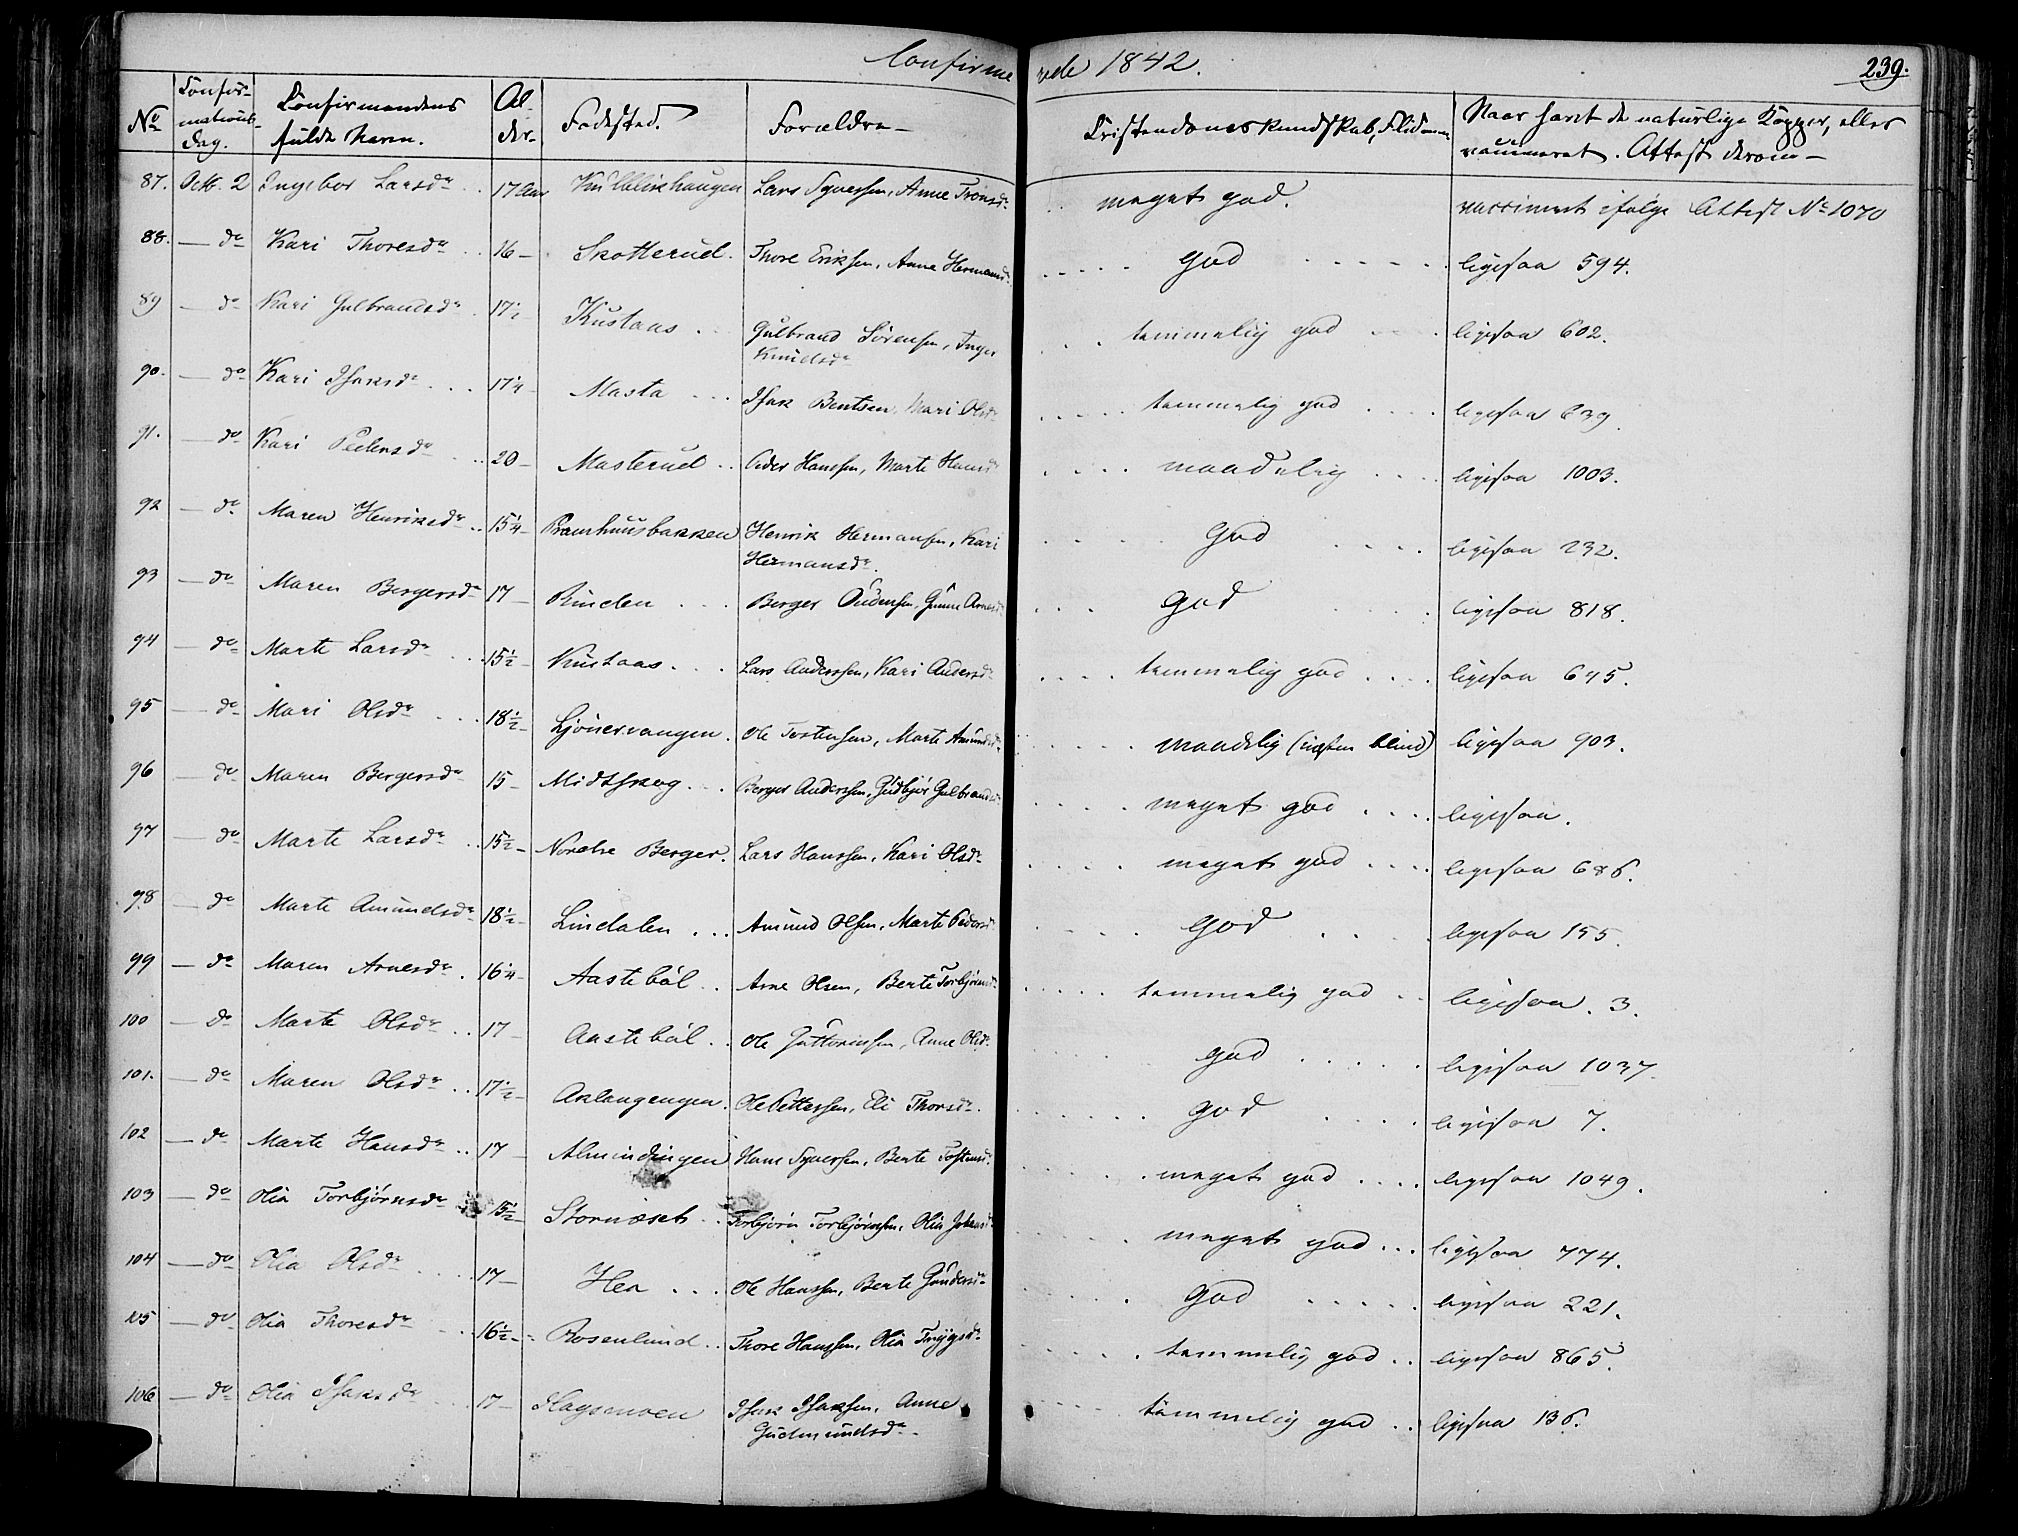 Confirmerede 1842.
239.
No Confirmations Dag. Confirmandens fulde Navn. Alder Fødested. Forældre Cristendomskundskab, Flid Naar havt de naturlige Kopper, eller vaccineret. Attest derom
87. Octb. 2 Ingebor Larsdr 17 Aar Lars Syversen, Anne Tronsdr meget god. vaccineret ifølge Attest No 1070
88. do Kari Thoresdr 16 Skotterud. Thore Eriksen, Anne Hermansdr god ligesaa 594.
89 do Kari Gulbrandsdr 17½ Kustaas Gulbrand Sørensen, Inger
Knudsdr temmelig god ligesaa 602.
90. do Kari Isaksdr 17¼ Masta Isak Bentsen, Mari Olsdr temmelig god ligesaa 639
91. do Kari Pedersdr 20 Masterud Peder Hansen, Marte Hansdr maadelig ligesaa 1003.
92 do Maren Henriksdr 15¼ Bramhuusbakken Henrik Hermansen, Kari
Hermansdr. god ligesaa 232.
93 do Maren Bergersdr 17 Rinden Berger Audensen, Gunne Arnesdr god ligesaa 818.
94 do Marte Larsdr 15½ Kustaas Lars Anderssen, Kari Andersdr temmelig god ligesaa 695.
95 do Mari Olsdr 18½ Ljønervangen. Ole Tostensen, Marte Amundsdr maadelig (næsten blind) ligesaa 903.
96 do Maren Bergersdr 15 Midtskog Berger Anderssen, Gudbjør Gulbrandsdr meget god ligesaa.
97 do Marte Larsdr 15½ Nordre Berger. Lars Hanssen, Kari Olsdr meget god ligesaa 686.
98 do Marte Amundsdr 18½ Lindalen Amund Olsen, Marte Pedersdr god ligesaa 155.
99 do Maren Arnesdr 16¼ Aastebøl Arne Olsen, Berte Torbjørnsdr temmelig god ligesaa. 3.
100 do Marte Olsdr 17 Aastebøl Ole Guttormsen, Anne Olsdr god ligesaa 1037.
101. do Maren Olsdr 17½ Aslangengen. Ole Pettersen, Eli Thorsdr. god ligesaa 7.
102 do Marte Hansdr 17 Almindingen Hans Syversen, Berte Tostensdr meget god ligesaa 1049.
103 do Olia Torbjørnsdr 15½ Stornæset Torbjørn Torbjørnsen, Olia Johansdr meget god ligesaa 774.
104 do Olia Olsdr 17 Hea Ole Hanssen, Berte Gundersdr god ligesaa 221.
105 do Olia Thoresdr 16½ Rosenlund Thore Hanssen, Olia Trygsdr temmelig god ligesaa 865.
106 do Olia Isaksdr 17 Hagemoen Isak Isaksen, Anne
Gudmundsdr. temmelig god ligesaa 136.